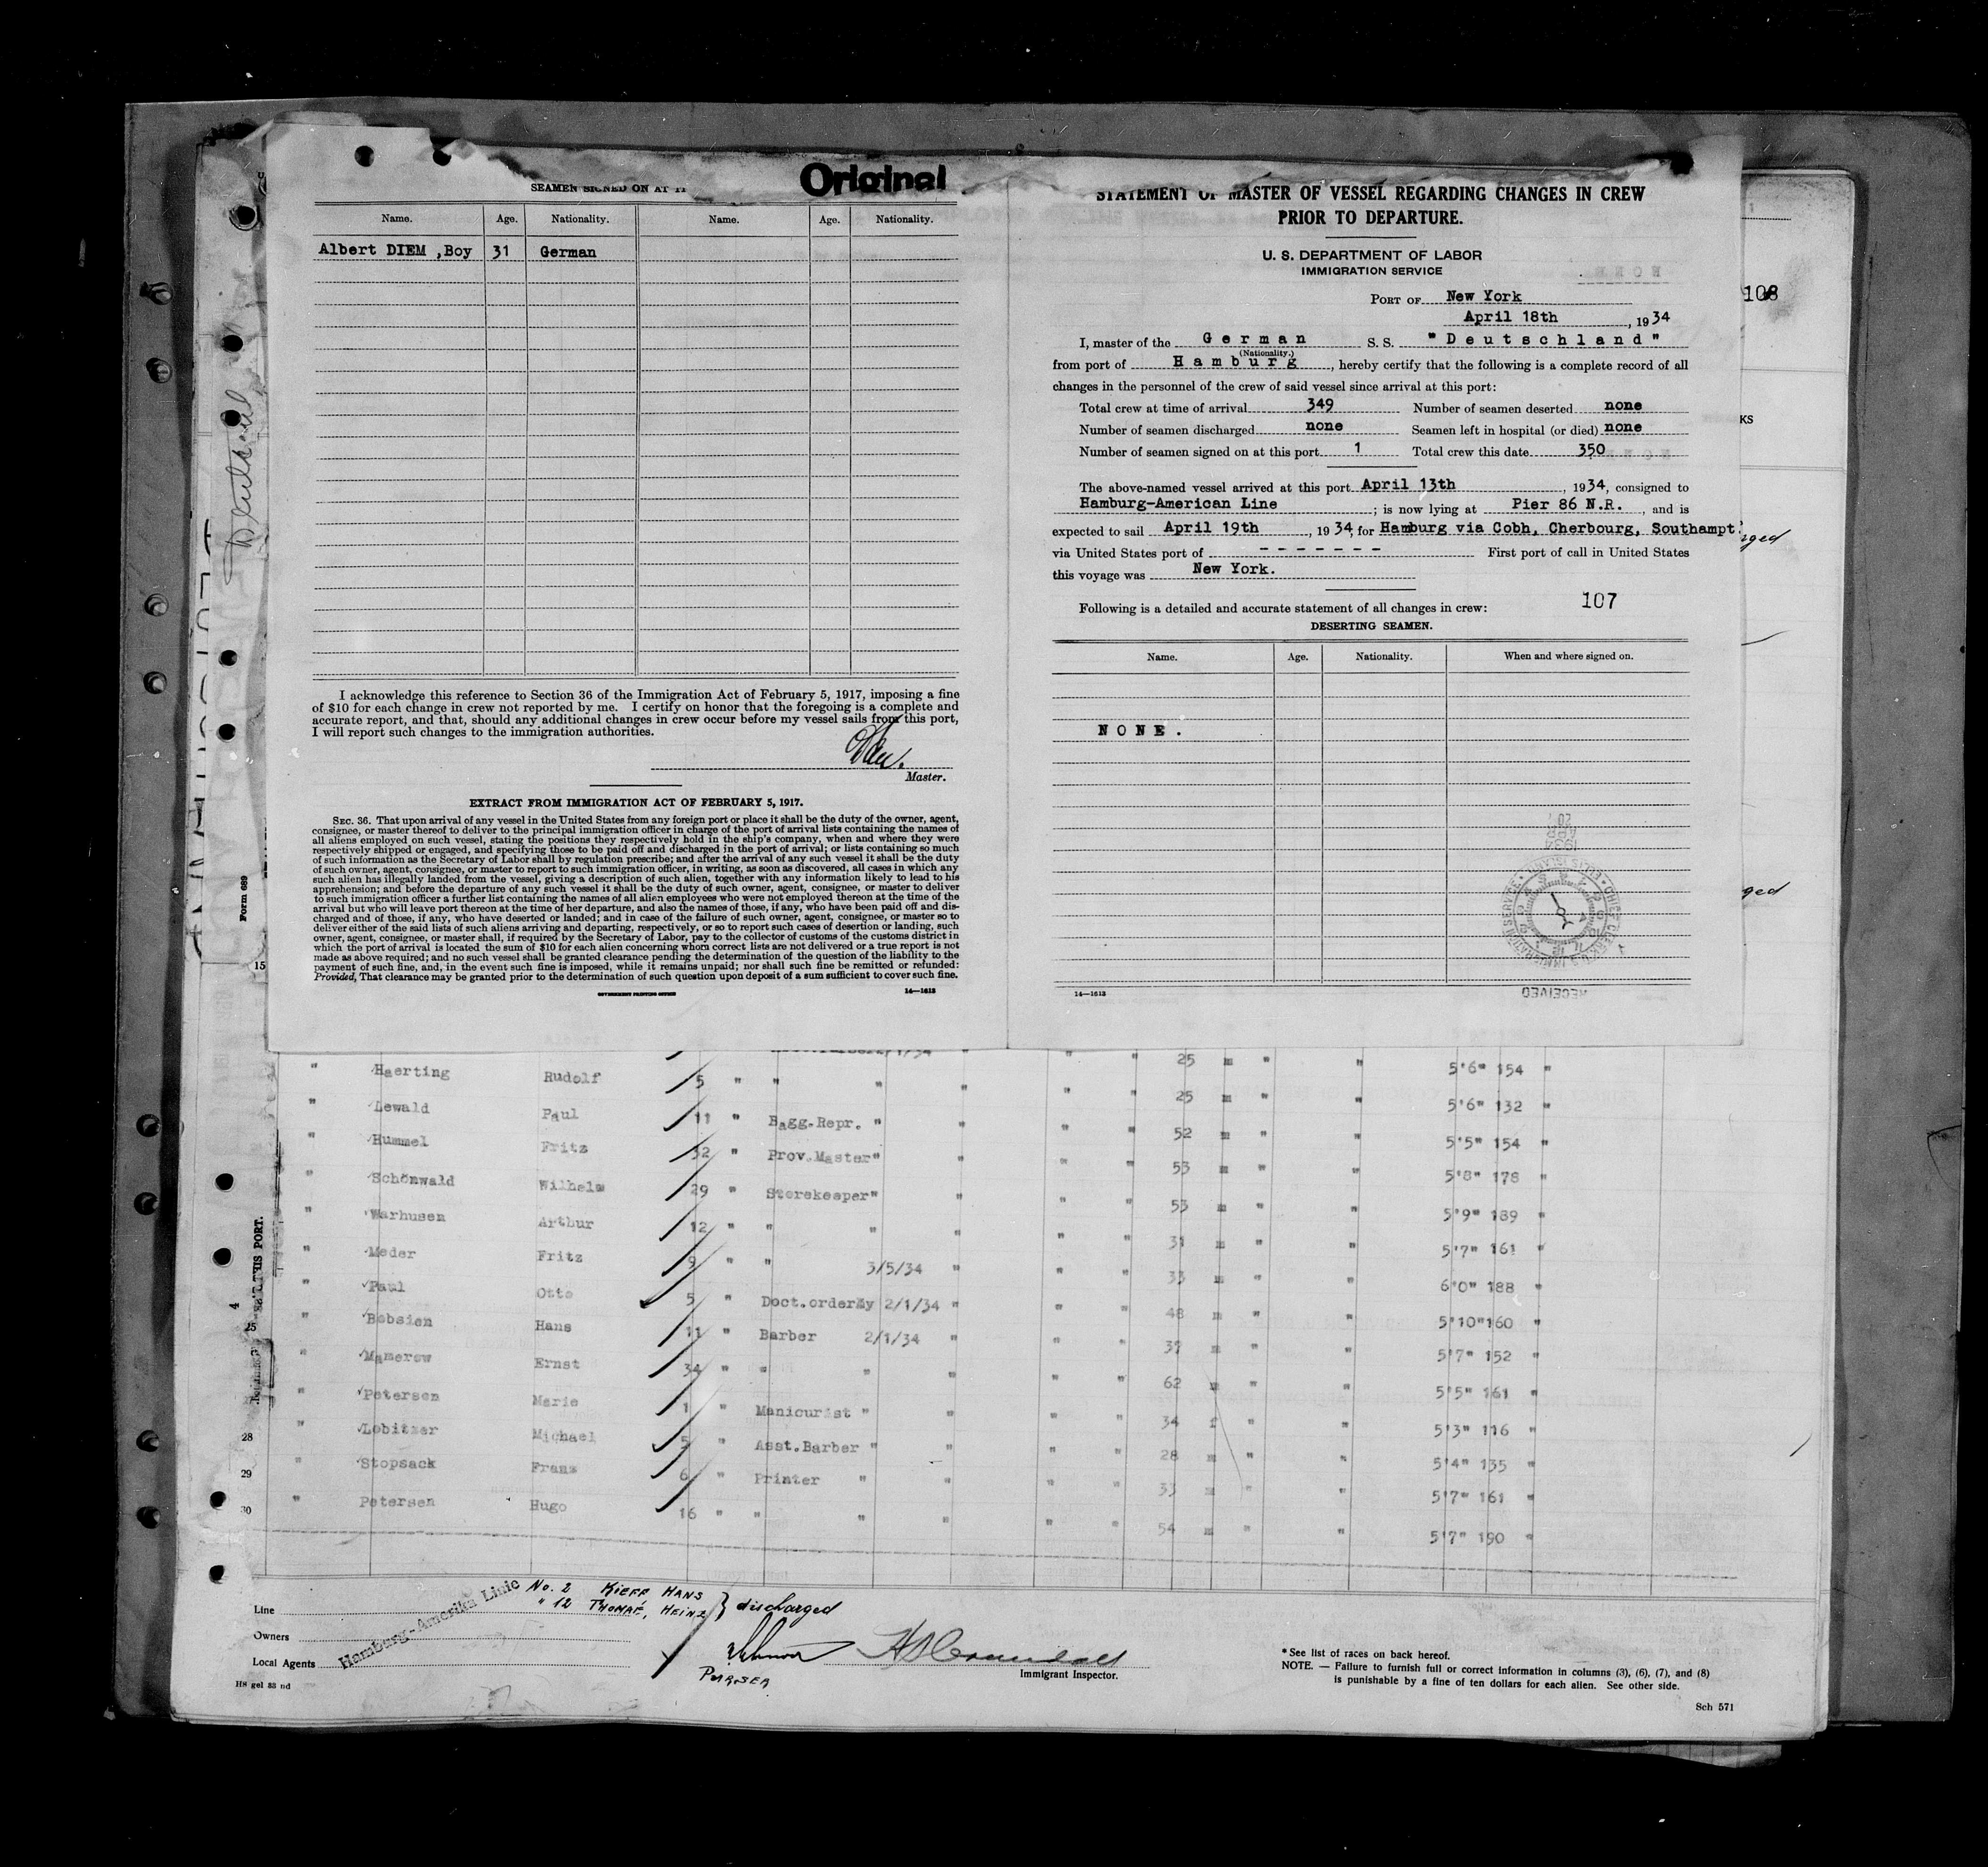 Original
SEAMEN SIGNED ON AT
Name. Age. Nationality. Name. Age. Nationality.
Albert DIEM ,Boy 31 German
I acknowledge this reference to Section 36 of the Immigration Act of February 5, 1917, imposing a fine
of $10 for each change in crew not reported by me. I certify on honor that the foregoing is a complete and
accurate report, and that, should any additional changes in crew occur before my vessel sails from this port,
I will report such changes to the immigration authorities.
Master.
EXTRACT FROM IMMIGRATION ACT OF FEBRUARY 5, 1917.
SEC. 36. That upon arrival of any vessel in the United States from any foreign port or place it shall be the duty of the owner, agent,
consignee, or master thereof to deliver to the principal immigration officer in charge of the port of arrival lists containing the names of
all aliens employed on such vessel, stating the positions they respectively hold in the ship's company, when and where they were
respectively shipped or engaged, and specifying those to be paid off and discharged in the port of arrival; or lists containing so much
of such information as the Secretary of Labor shall by regulation prescribe; and after the arrival of any such vessel it shall be the duty
of such owner, agent, consignee, or master to report to such immigration officer, in writing, as soon as discovered, all cases in which any
such alien has illegally landed from the vessel, giving a description of such alien, together with any information likely to lead to his
apprehension; and before the departure of any such vessel it shall be the duty of such owner, agent, consignee, or master to deliver
to such immigration officer a further list containing the names of all alien employees who were not employed thereon at the time of the
arrival but who will leave port thereon at the time of her departure, and also the names of those, if any, who have been paid off and dis-
charged and of those, if any, who have deserted or landed; and in case of the failure of such owner, agent, consignee, or master so to
deliver either of the said lists of such aliens arriving and departing, respectively, or so to report such cases of desertion or landing, such
owner, agent, consignee, or master shall, if required by the Secretary of Labor, pay to the collector of customs of the customs district in
which the port of arrival is located the sum of $10 for each alien concerning whom correct lists are not delivered or a true report is not
made as above required; and no such vessel shall be granted clearance pending the determination of the question of the liability to the
payment of such fine, and, in the event such fine is imposed, while it remains unpaid; nor shall such fine be remitted or refunded:
Provided, That clearance may be granted prior to the determination of such question upon deposit of a sum sufficient to cover such fine.
GOVERNMENT PRINTING OFFICE 14—1613
STATEMENT OF MASTER OF VESSEL REGARDING CHANGES IN CREW
PRIOR TO DEPARTURE.
U. S. DEPARTMENT OF LABOR
IMMIGRATION SERVICE
PORT OF New York
April 18th, 1934
I, master of the German S. S. "Deutschland"
(Nationality.)
from port of Hamburg, hereby certify that the following is a complete record of all
changes in the personnel of the crew of said vessel since arrival at this port:
Total crew at time of arrival 349 Number of seamen deserted none
Number of seamen discharged none Seamen left in hospital (or died) none
Number of seamen signed on at this port 1 Total crew this date 350
The above-named vessel arrived at this port April 13th, 1934, consigned to
Hamburg-American Line; is now lying at Pier 86 N.R., and is
expected to sail April 19th, 1934, for Hamburg via Cobh, Cherbourg, Southampt.
via United States port of - - - - - - - First port of call in United States
this voyage was New York.
Following is a detailed and accurate statement of all changes in crew: 107
DESERTING SEAMEN.
Name. Age. Nationality. When and where signed on.
NONE.
14—1613
RECEIVED
108
KS
Form 689
15
" Haerting Rudolf 5 " " " " " " 25 m " " 5'6" 154 "
" Lewald Paul 11 " Bagg.Repr. " " " " 25 m " " 5'6" 132 "
" Hummel Fritz 32 " Prov.Master" " " " 52 m " " 5'5" 154 "
" Schönwald Wilhelm 29 " Storekeeper" " " " 53 m " " 5'8" 178 "
" Warhusen Arthur 12 " " " " " " 53 m " " 5'9" 189 "
" Meder Fritz 9 " " 3/5/34 " " " 31 m " " 5'7" 161 "
" Paul Otto 5 " Doct.orderly 2/1/34 " " " 33 m " " 6'0" 188 "
25 " Bobsien Hans 11 " Barber 2/1/34 " " " 48 m " " 5'10" 160 "
" Mamerow Ernst 34 " " " " " " 37 m " " 5'7" 152 "
" Petersen Marie 1 " Manicurist " " " " 62 m " " 5'5" 161 "
28 " Lobitzer Michael 5 " Asst.Barber " " " " 34 f " " 5'3" 116 "
29 " Stopsack Franz 6 " Printer " " " " 28 m " " 5'4" 135 "
30 " Petersen Hugo 16 " " " " " " 33 m " " 5'7" 161 "
54 m " " 5'7" 190 "
No. 2 KIEFF, HANS
" 12 THOMAE, HEINZ } discharged
Line
Owners
Local Agents
Hamburg-Amerika Linie
PURSER
Immigrant Inspector.
HS gel 33 nd
* See list of races on back hereof.
NOTE. — Failure to furnish full or correct information in columns (3), (6), (7), and (8)
is punishable by a fine of ten dollars for each alien. See other side.
Sch 571